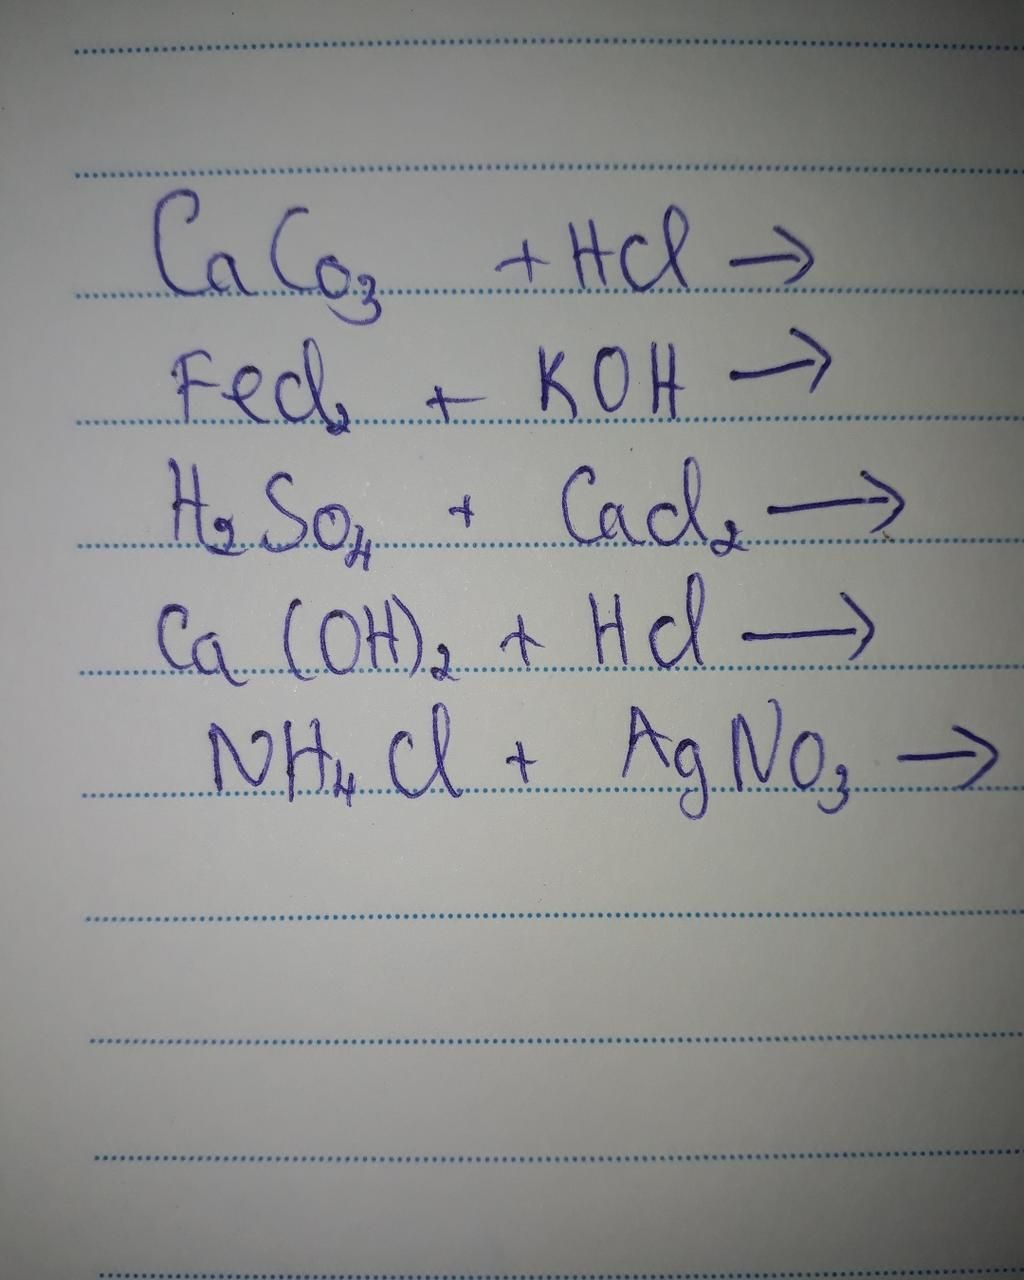 CaCo₃ + HCl →
FeCl₂ + KOH →
H₂So₄ + CaCl₂ →
Ca (OH)₂ + HCl →
NH₄Cl + AgNO₃ →